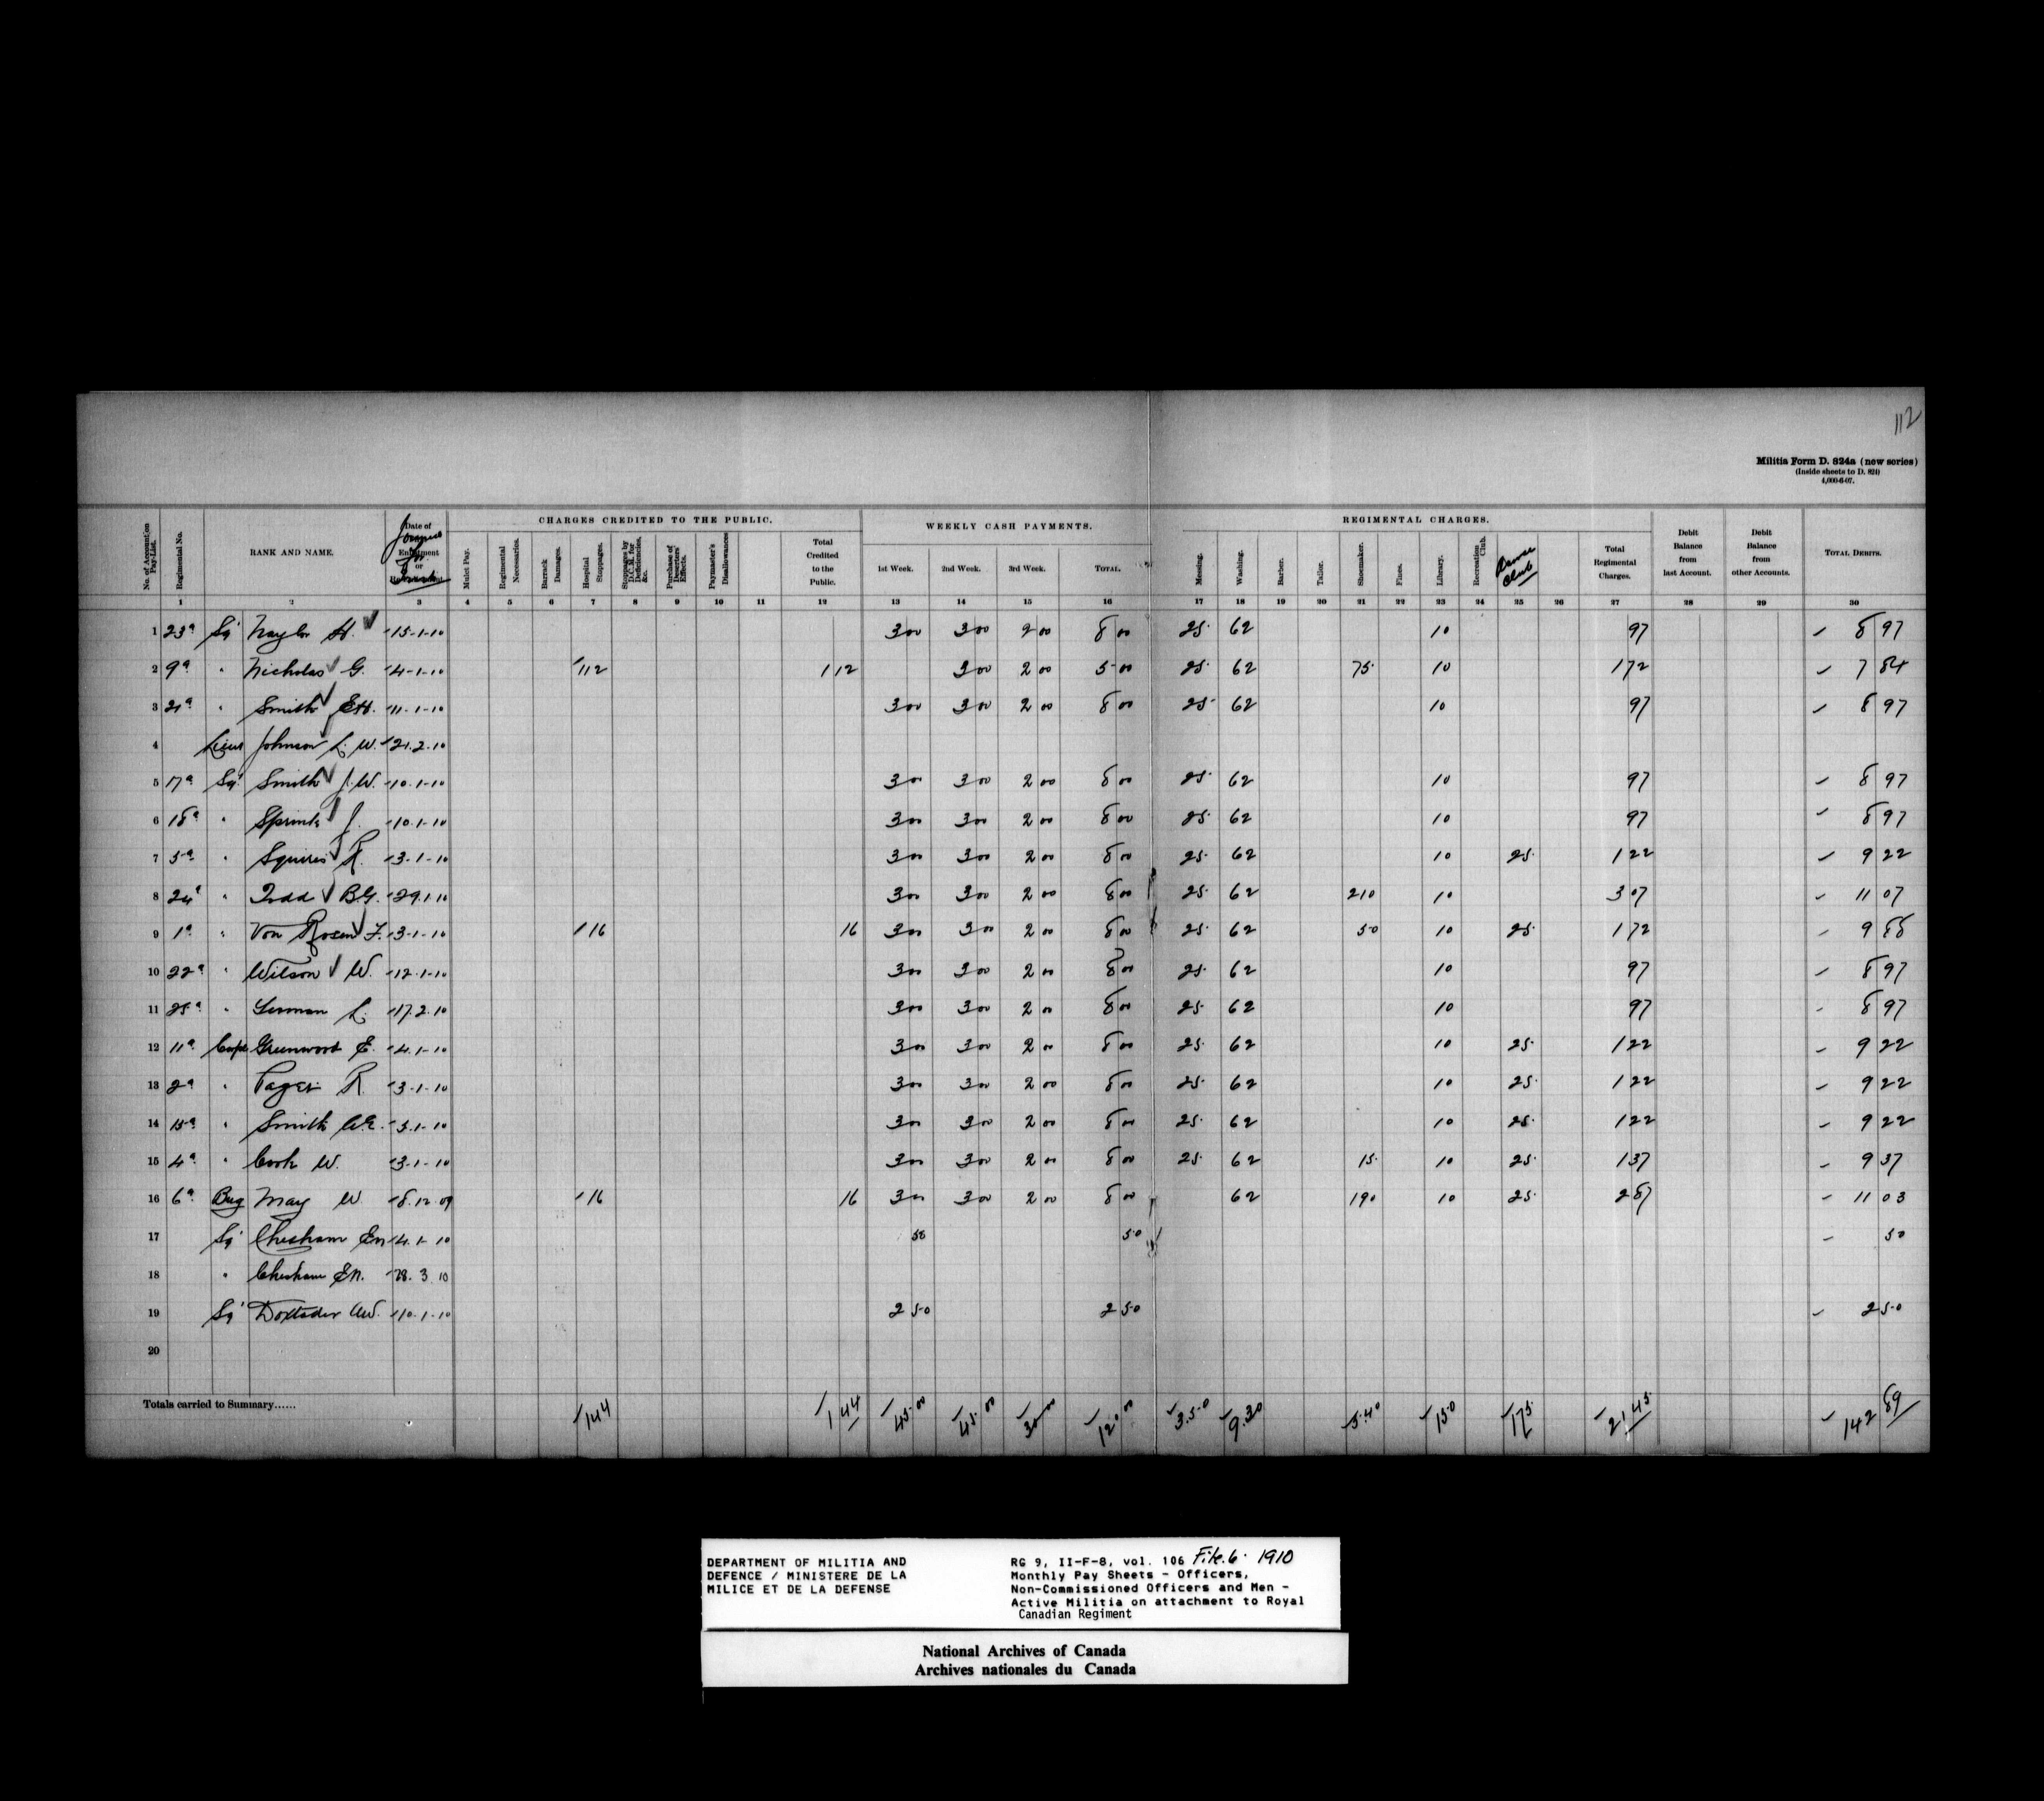 112
Militia Form D. 824a (new series)
(Inside sheets to D. 824)
4,000-6-07.
No. of Account on Pay-List. Regimental No. RANK AND NAME. Date of Enlistment or
CHARGES CREDITED TO THE PUBLIC. WEEKLY CASH PAYMENTS. REGIMENTAL CHARGES.
Mulct Pay. Regimental Necessaries. Barrack Damages. Hospital Stoppages. Stoppages by D.C.M. for Deficiencies, &c. Purchase of Deserters' Effects. Paymaster's Disallowances Total Credited to the Public. 1st Week. 2nd Week. 3rd Week. TOTAL. Messing. Washing. Barber. Tailor. Shoemaker. Fines. Library. Recreation Club. Dance Club Total Regimental Charges. Debit Balance from last Account. Debit Balance from other Accounts. TOTAL DEBITS.
1 2 3 4 5 6 7 8 9 10 11 12 13 14 15 16 17 18 19 20 21 22 23 24 25 26 27 28 29 30
1 23a Sgt Naylor H. 15-1-10 3 00 3 00 2 00 8 00 25 62 10 97 8 97
2 9a " Nicholas G. 4-1-10 1 12 1 12 3 00 2 00 5 00 25 62 75 10 1 72 7 84
3 21a " Smith E.H. 11-1-10 3 00 3 00 2 00 8 00 25 62 10 97 8 97
4 Lieut Johnson L. W. 21.2.10
5 17a Sgt Smith J.W. 10-1-10 3 00 3 00 2 00 8 00 25 62 10 97 8 97
6 18a " Sprinks J. 10-1-10 3 00 3 00 2 00 8 00 25 62 10 97 8 97
7 5a " Squires R. 3-1-10 3 00 3 00 2 00 8 00 25 62 10 25 1 22 9 22
8 24a " Todd B.G. 29.1.10 3 00 3 00 2 00 8 00 25 62 2 10 10 3 07 11 07
9 1a " Von Rosen F. 3-1-10 16 16 3 00 3 00 2 00 8 00 25 62 50 10 25 1 72 9 88
10 22a " Wilson W. 12-1-10 3 00 3 00 2 00 8 00 25 62 10 97 8 97
11 25a " Yeoman L. 17.2.10 3 00 3 00 2 00 8 00 25 62 10 97 8 97
12 11a Corpl Greenwood E. 4-1-10 3 00 3 00 2 00 8 00 25 62 10 25 1 22 9 22
13 2a " R. 3-1-10 3 00 3 00 2 00 8 00 25 62 10 25 1 22 9 22
14 15a " Smith W.E. 5-1-10 3 00 3 00 2 00 8 00 25 62 10 25 1 22 9 22
15 4a " Cook W. 3-1-10 3 00 3 00 2 00 8 00 25 62 15 10 25 1 37 9 37
16 6a Bug May W 8.12.09 16 16 3 00 3 00 2 00 8 00 62 1 90 10 25 2 87 11 03
17 Sgt Chesham En 4-1-10 50 50 50
18 " Chesham E.N. 28.3.10
19 Sgt Doxtader 10-1-10 2 50 2 50 2 50
20
Totals carried to Summary...... 1 44 1 44 45 00 45 00 30 00 120 00 3.50 9.30 5.40 1 50 1 75 21 45 142 89
DEPARTMENT OF MILITIA AND
DEFENCE / MINISTERE DE LA
MILICE ET DE LA DEFENSE
RG 9, II-F-8, vol. 106 File.6. 1910
Monthly Pay Sheets - Officers,
Non-Commissioned Officers and Men -
Active Militia on attachment to Royal
Canadian Regiment
National Archives of Canada
Archives nationales du Canada